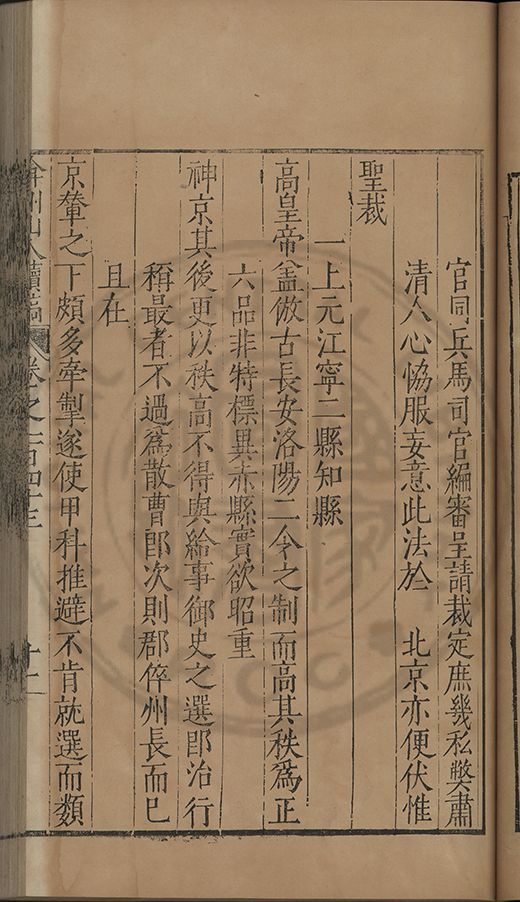 官同兵馬司官編審呈請裁定庶幾私獘肅
清人心恊服妄意此法於 北京亦便伏惟
聖裁
一上元江寧二縣知縣
高皇帝葢倣古長安洛陽二令之制而高其秩爲正
六品非特標異赤縣實欲昭重
神京其後更以秩高不得與給事御史之選卽治行
稱最者不過爲散曹郎次則郡倅州長而已
且在
京輦之下頗多牽掣遂使甲科推避不肯就選而類
弇州山人續稿 卷之一百四十三 十二